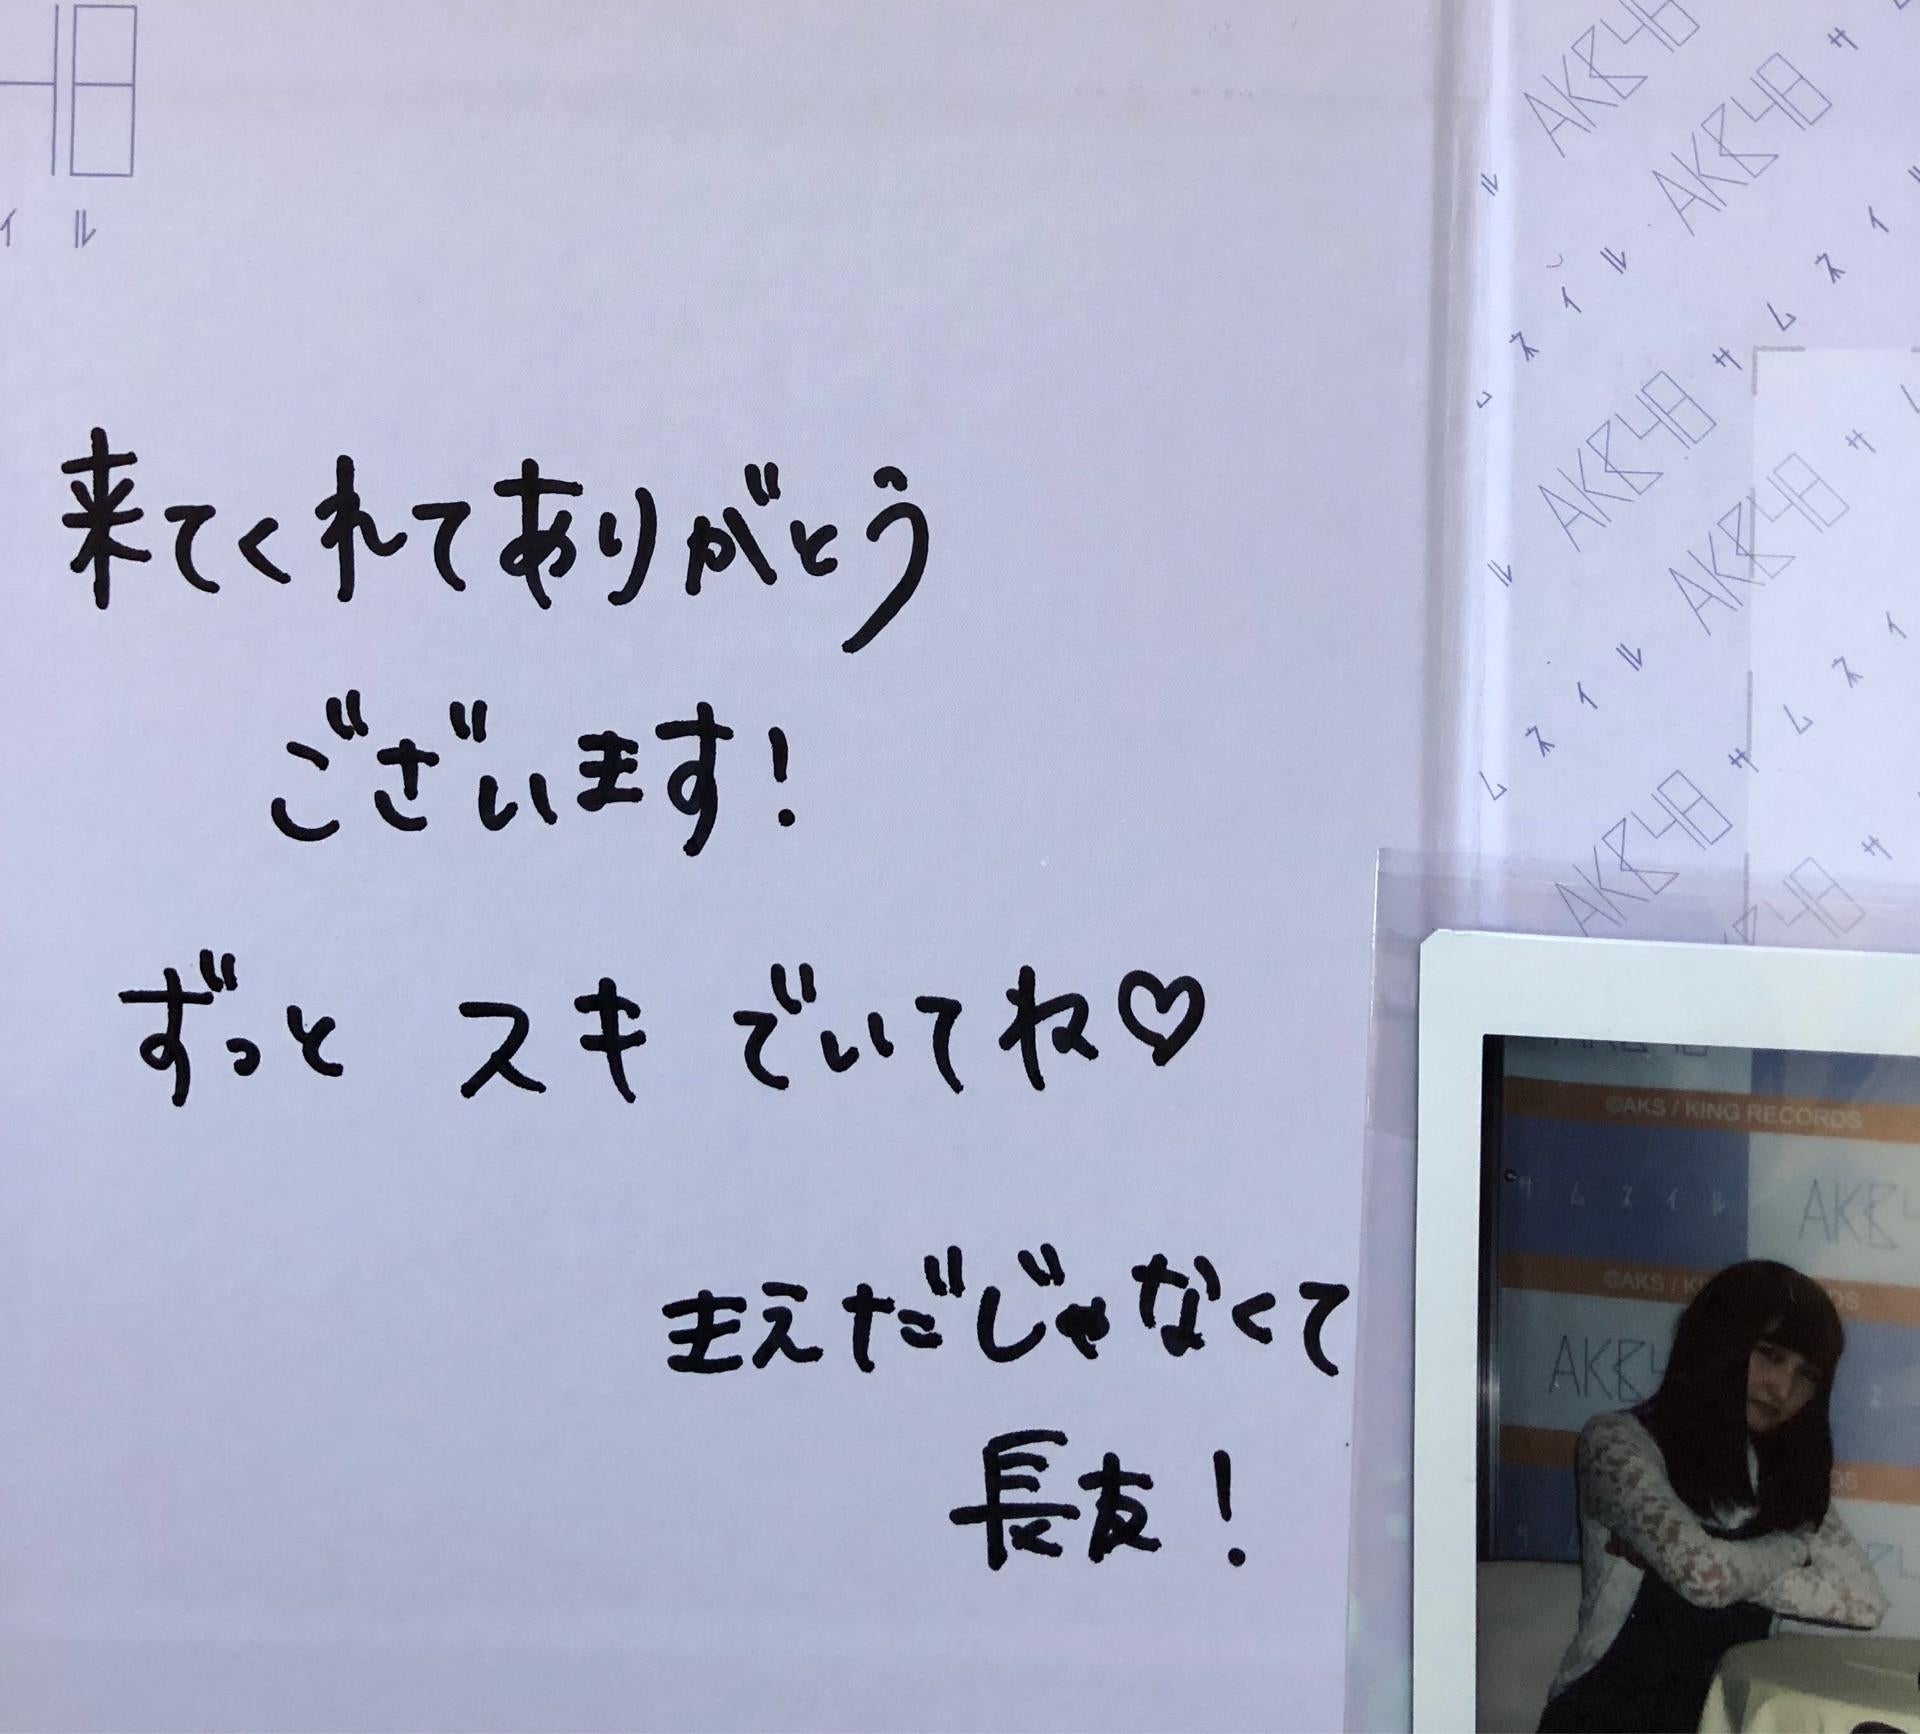 48
イル
来てくれてありがとう
ございます!
ずっと スキ でいてね♡
まえだじゃなくて
長友!
AKB48 サムネイル
AKB48 サムネイル
AKB48 サムネイル
AKB48 サムネイル
AKB48 サ
AKB48 サ
©AKS / KING RECORDS
サムネイル
AKB4
©AKS / KI
DS
AKB4
DS